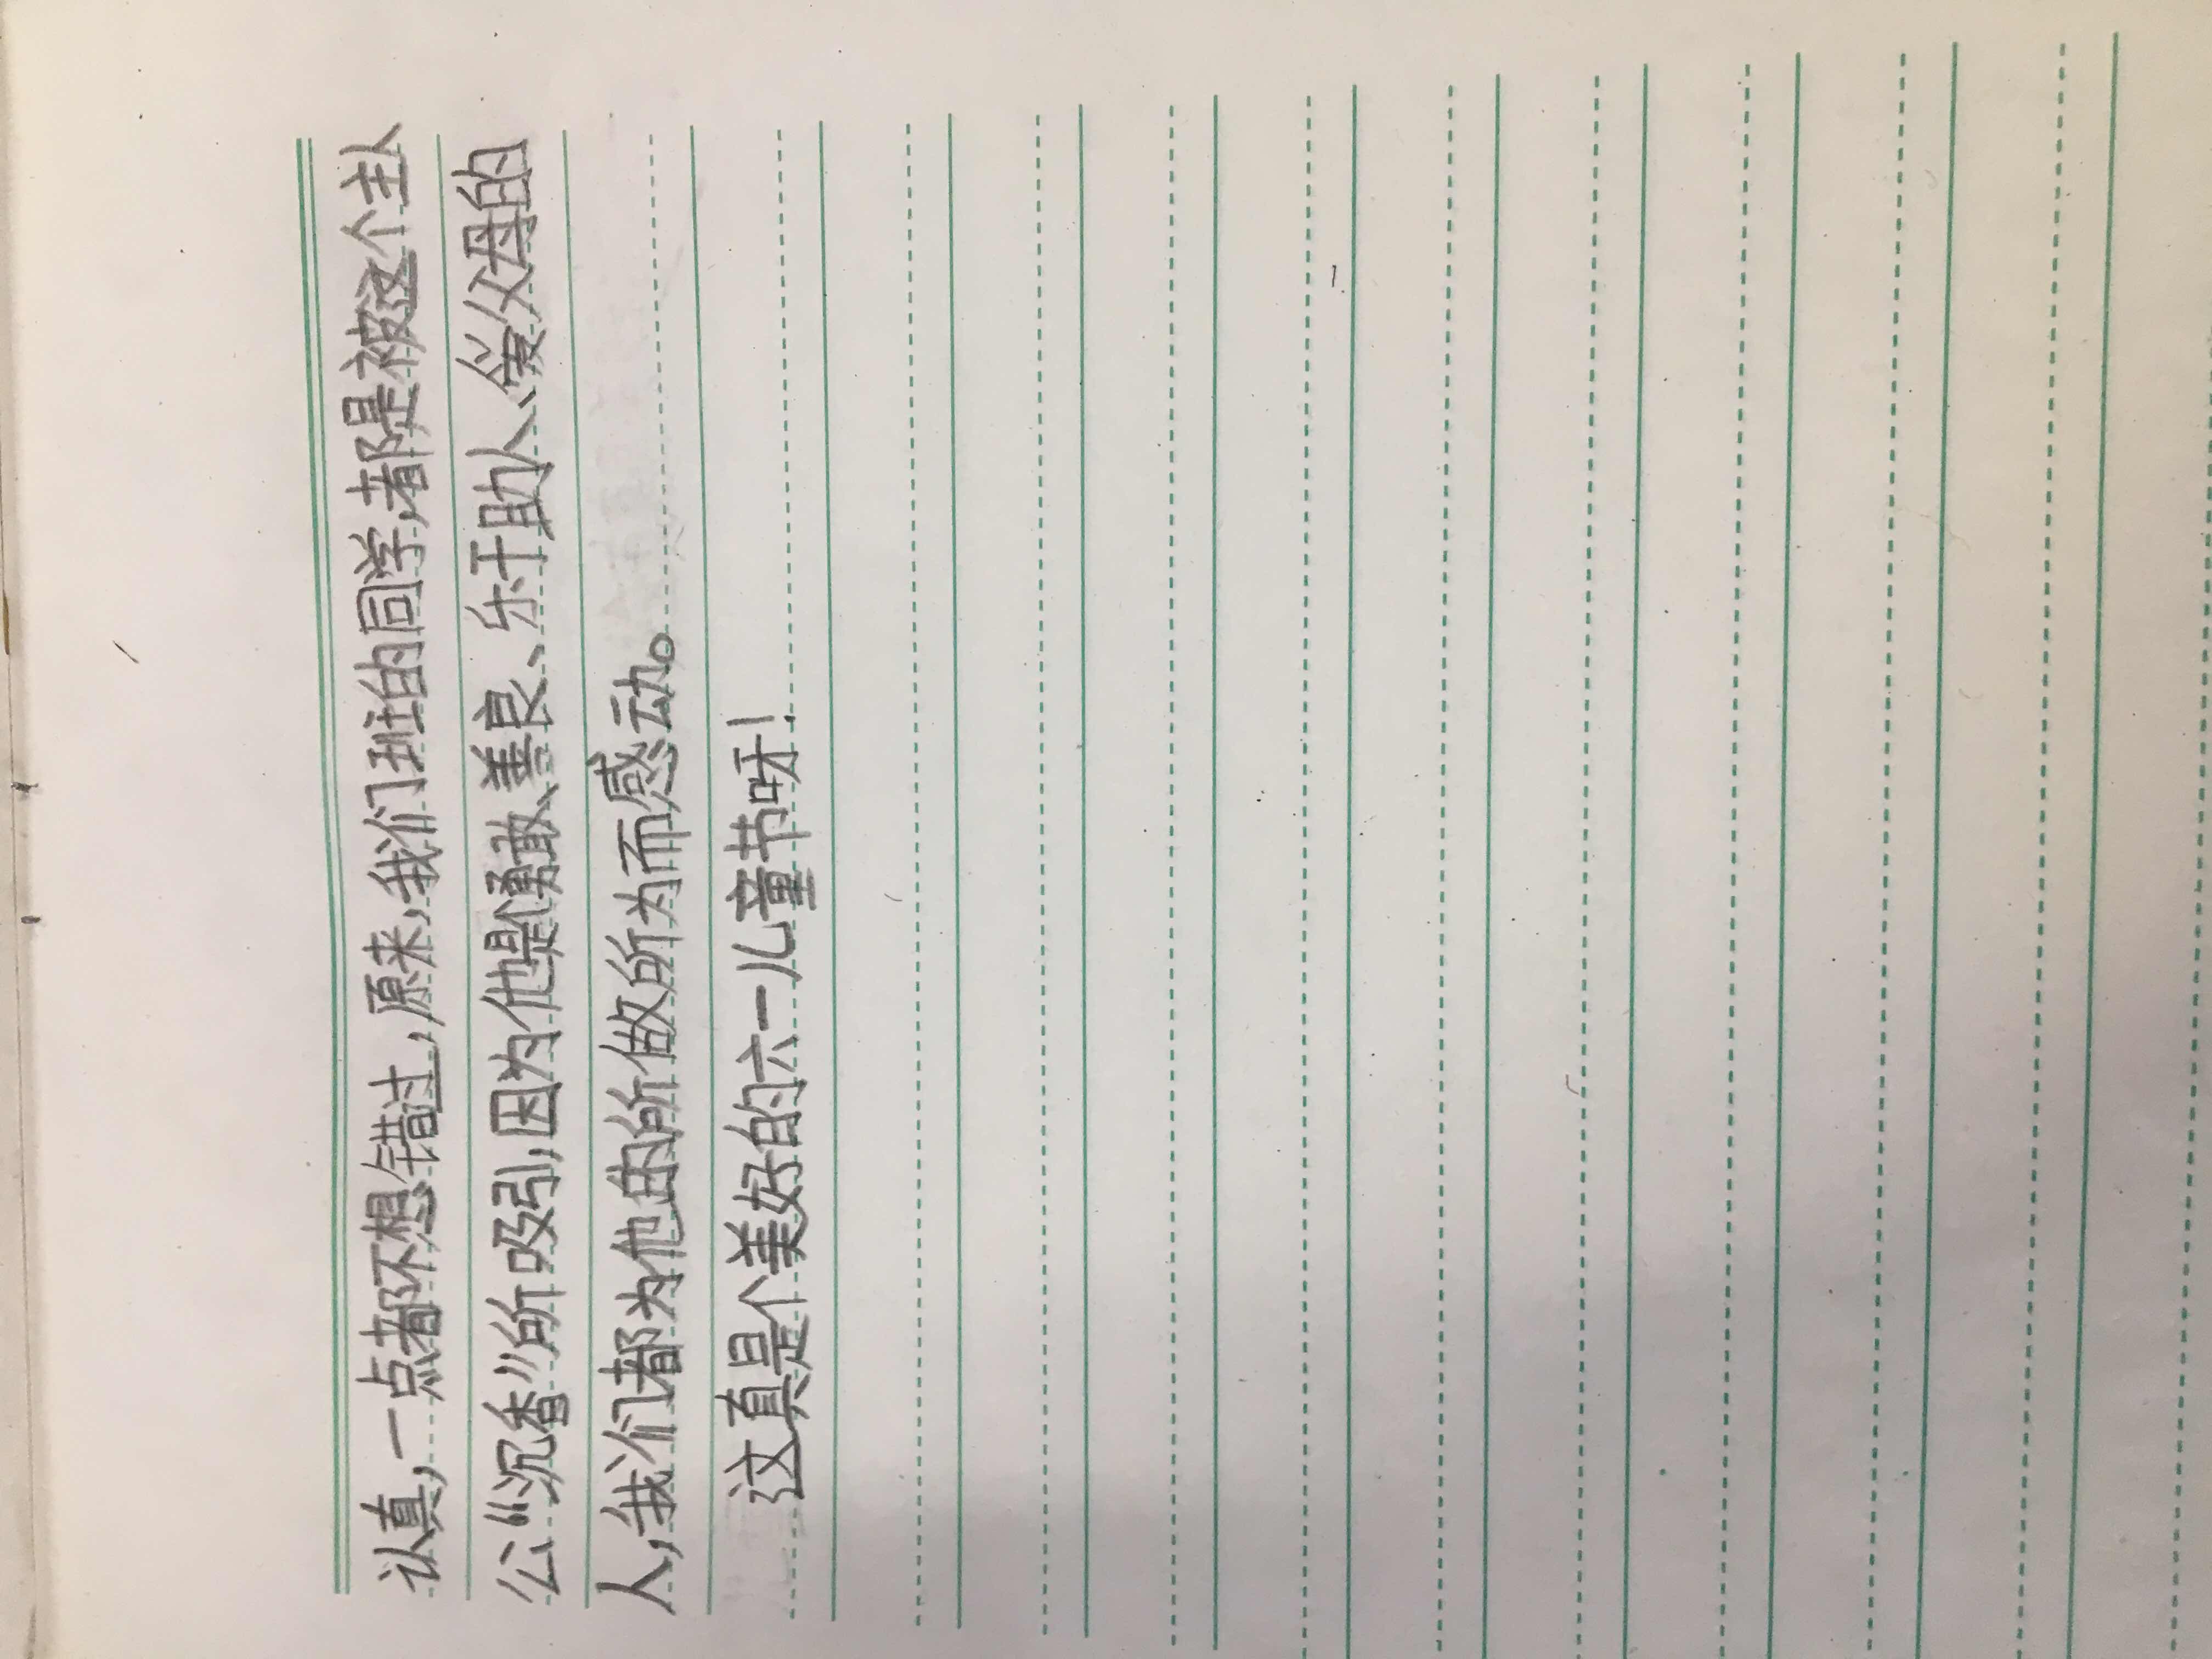 认真,一点都不想错过,原来,我们班的同学,都是被这个主人
公“沉香”所吸引,因为他是个勇敢、善良、乐于助人、爱父母的
人,我们都为他的所做所为而感动。
这真是个美好的六一儿童节呀!